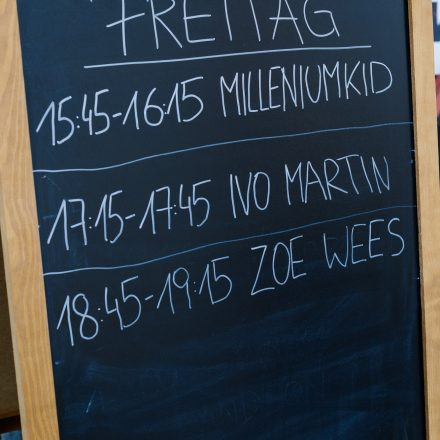 FREITAG
15:45-16:15 MILLENIUMKID
17:15-17:45 IVO MARTIN
18:45-19:15 ZOE WEES